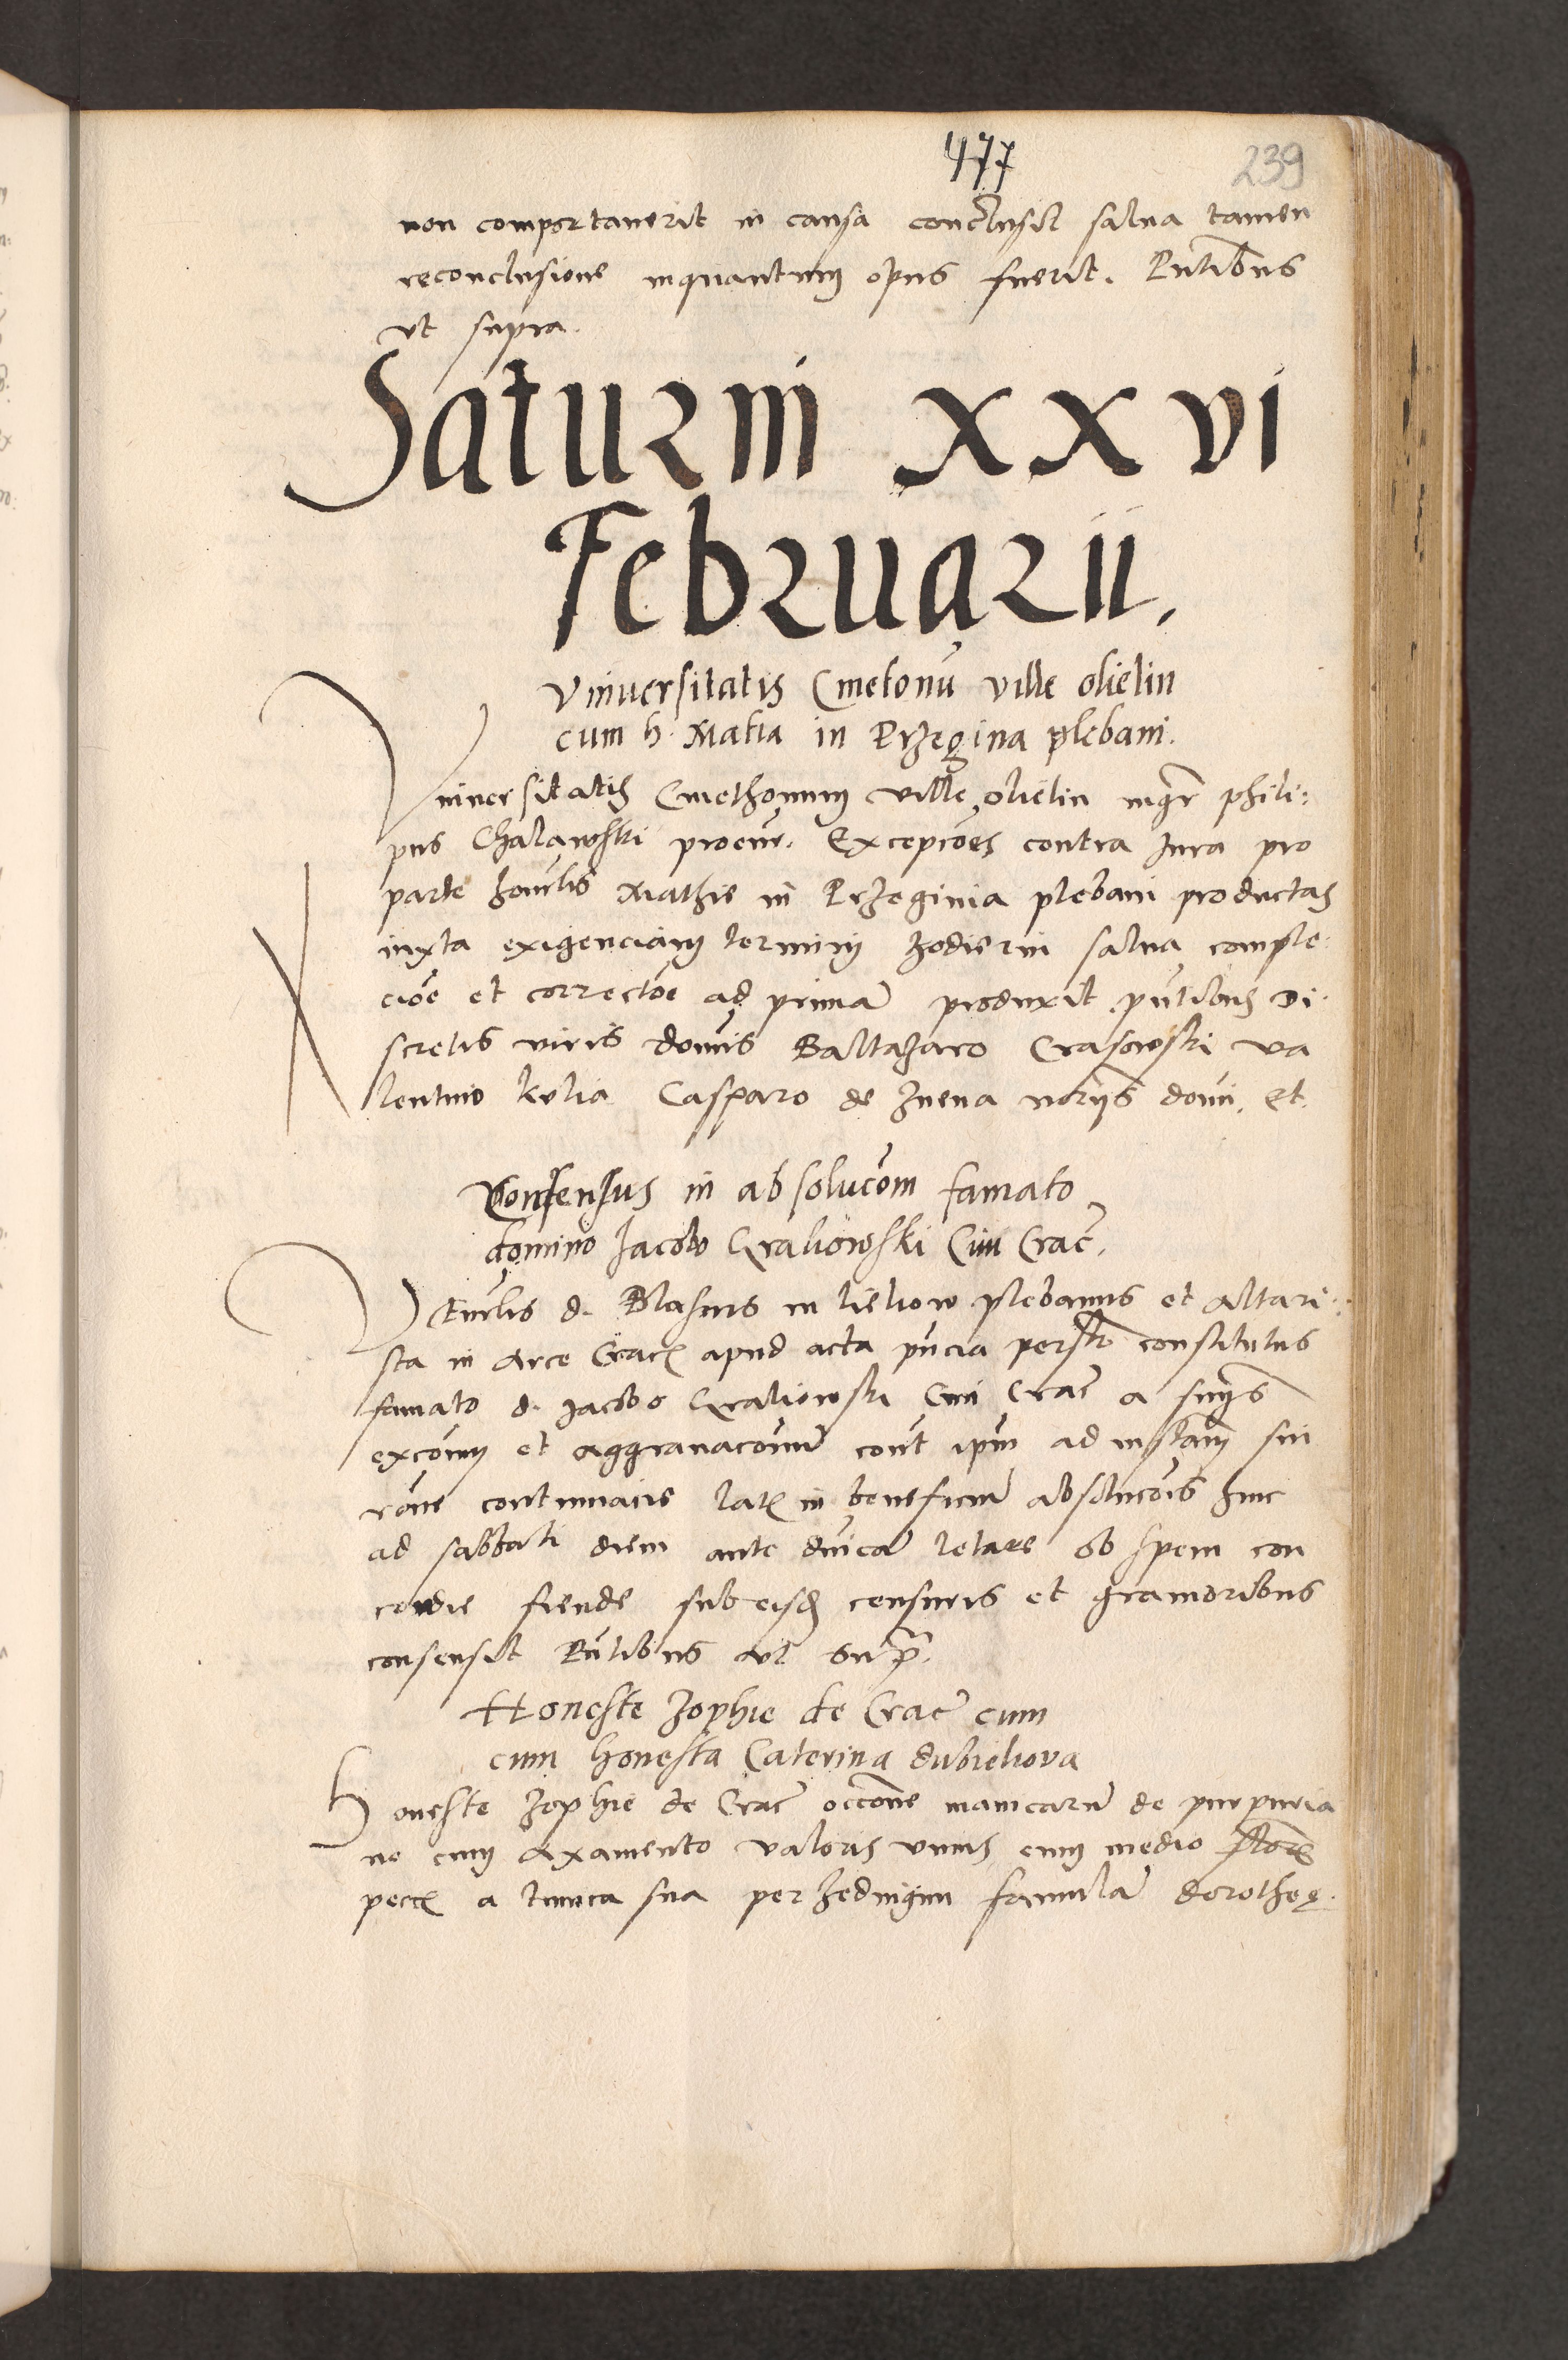 477
239
non comportaverit in causa conclusit salva tamen
reconclusione inquantum opus fuerit. Pntibus
ut supra.
Saturni XXVI
Februarii.
Universitatis Cmetonu ville olielin
cum h. Matia in Przegina plebani.
Universitatis Cmethonum ville olielin mgr phili:
pus Chalawski procur. Excepcoes contra Jura pro
parte honrlis Mathie in Przeginia plebani productas
iuxta exigenciam termini hodierni salva comple
cioe et correctoe ad prima produxit pntibus Di
scretis viris domis Baltazaro Crasowski va
lentino kelia Casparo de Znena norys domi. et.
Consensus in absolucom famato
domino Jacobo Graliowski Civi Crac.
Vnrlis d. Blasius in lieliow plebanus et Altari:
sta in Arce Crac apud acta pncia persolr constitutus
famato d. Jacobo Graliowski Civi Crac a snys
excoum et aggravacoum cont ipm ad instam sui
rone contumacie lat in beneficium absolucois hinc
ad sabbati diem ante dnica letare ob spem con
cordie fiende sub eisd censuris et gravioribus
consensit Pntibus ut supr.
Honeste Zophie de Crac cum
cum honesta Caterina dubieliova
Honeste Zophie de Crac occone manicaru de purpuria
no cum Axamento valoris unius cum medio flor
pecc a tunica sua per hedvigim famula dorothee.